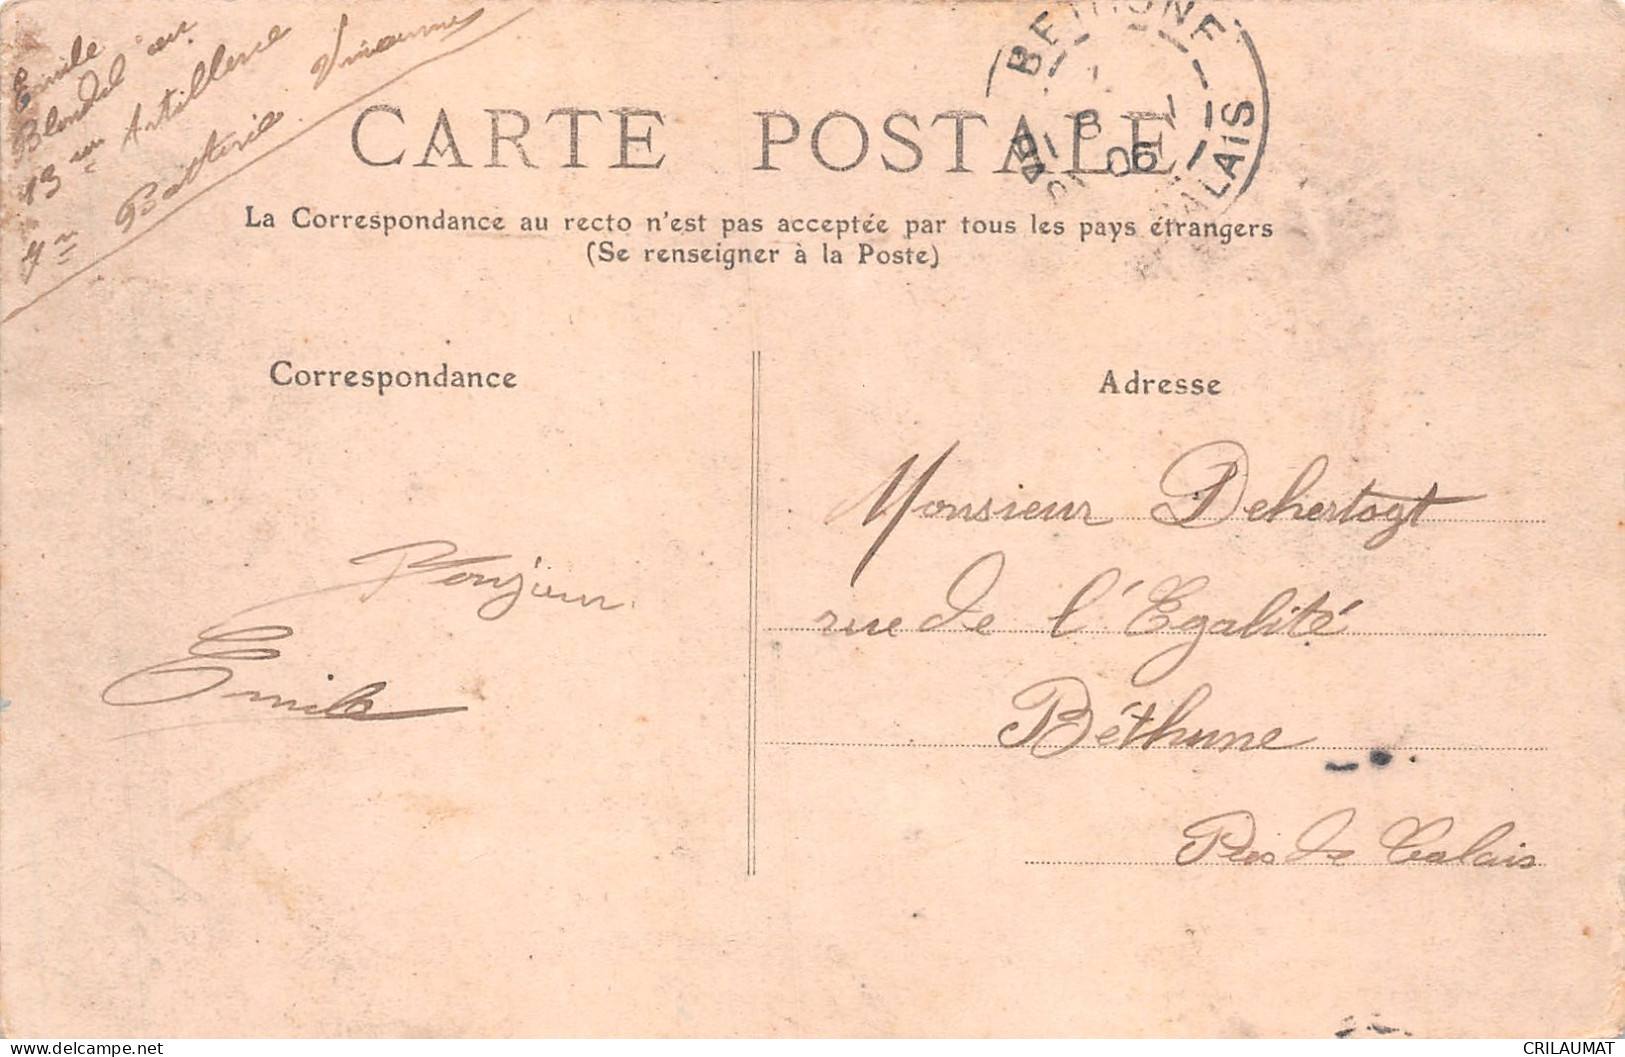 Emile
Blondel au
13me Artillerie
4me Batterie Vincennes
CARTE POSTALE
La Correspondance au recto n'est pas acceptée par tous les pays étrangers
(Se renseigner à la Poste)
BETHUNE
8
06
CALAIS
Correspondance
Adresse
Bonjour
Emile
Monsieur Dehertogt
rue de l'Egalité
Béthune
Pas de Calais
CRILAUMAT